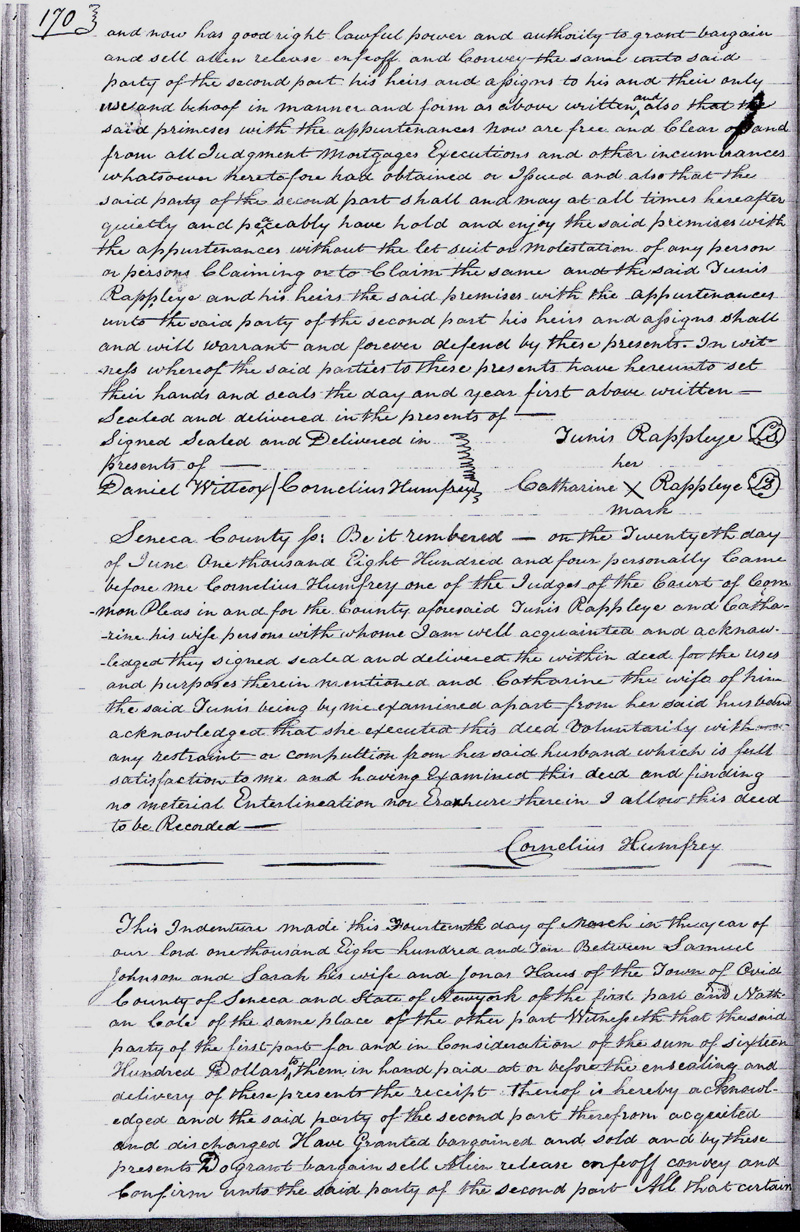 170
and now has good right lawful power and authority to grant bargain
and sell alien release enfeoff and Convey the same unto said
party of the second part his heirs and assigns to his and their only
use and behoof in manner and form as above written and also that the
said primeses with the appurtenances now are free and Clear of and
from all Judgment Mortgages Executions and other incumbrances
whatsoever heretofore had obtained or Issued and also that the
said party of the second part shall and may at all times hereafter
quietly and peaceably have hold and enjoy the said premises with
the appurtenances without the let suit or Molestation of any person
or persons Claiming or to Claim the same and the said Tunis
Rappleye and his heirs the said premises with the appurtenances
unto the said party of the second part his heirs and assigns shall
and will warrant and forever defend by these presents In wit-
ness whereof the said parties to these presents have hereunto set
their hands and seals the day and year first above written —
Sealed and delivered in the presents of —
Signed Sealed and Delivered in
presents of —
Tunis Rappleye LS
her
Daniel Wittcox / Cornelius Humfrey
Catharine X Rappleye LS
mark
Seneca County ss: Be it rembered — on the Twentyeth day
of June One thousand Eight Hundred and four personally Came
before me Cornelius Humfrey one of the Judges of the Court of Com
-mon Pleas in and for the County aforesaid Tunis Rappleye and Catha-
-rine his wife persons with whome I am well acquainted and acknaw-
-ledged they signed sealed and delivered the within deed for the uses
and purposes therein mentioned and Catharine the wife of him
the said Tunis being by me examined apart from her said husband
acknowledged that she executed this deed Voluntarily with
any restraint or compultion from her said husband which is full
satisfaction to me and having Examined this deed and finding
no meterial Enterlineation nor Erashure therein I allow this deed
to be Recorded —
Cornelius Humfrey
This Indenture made this Fourteenth day of March in the year of
our lord one thousand Eight hundred and Ten Between Samuel
Johnson and Sarah his wife and Jonas Haus of the Town of Ovid
County of Seneca and State of Newyork of the first part and Nath-
an Cole of the same place of the other part Witnesseth that the said
party of the first part for and in Consideration of the sum of sixteen
Hundred Dollars to them in hand paid at or before the ensealing and
delivery of these presents the receipt thereof is hereby acknowl-
edged and the said party of the second part therefrom acquited
and discharged Have Granted bargained and sold and by these
presents Do grant bargain sell Alien release enfeoff convey and
Confirm unto the said party of the second part All that certain